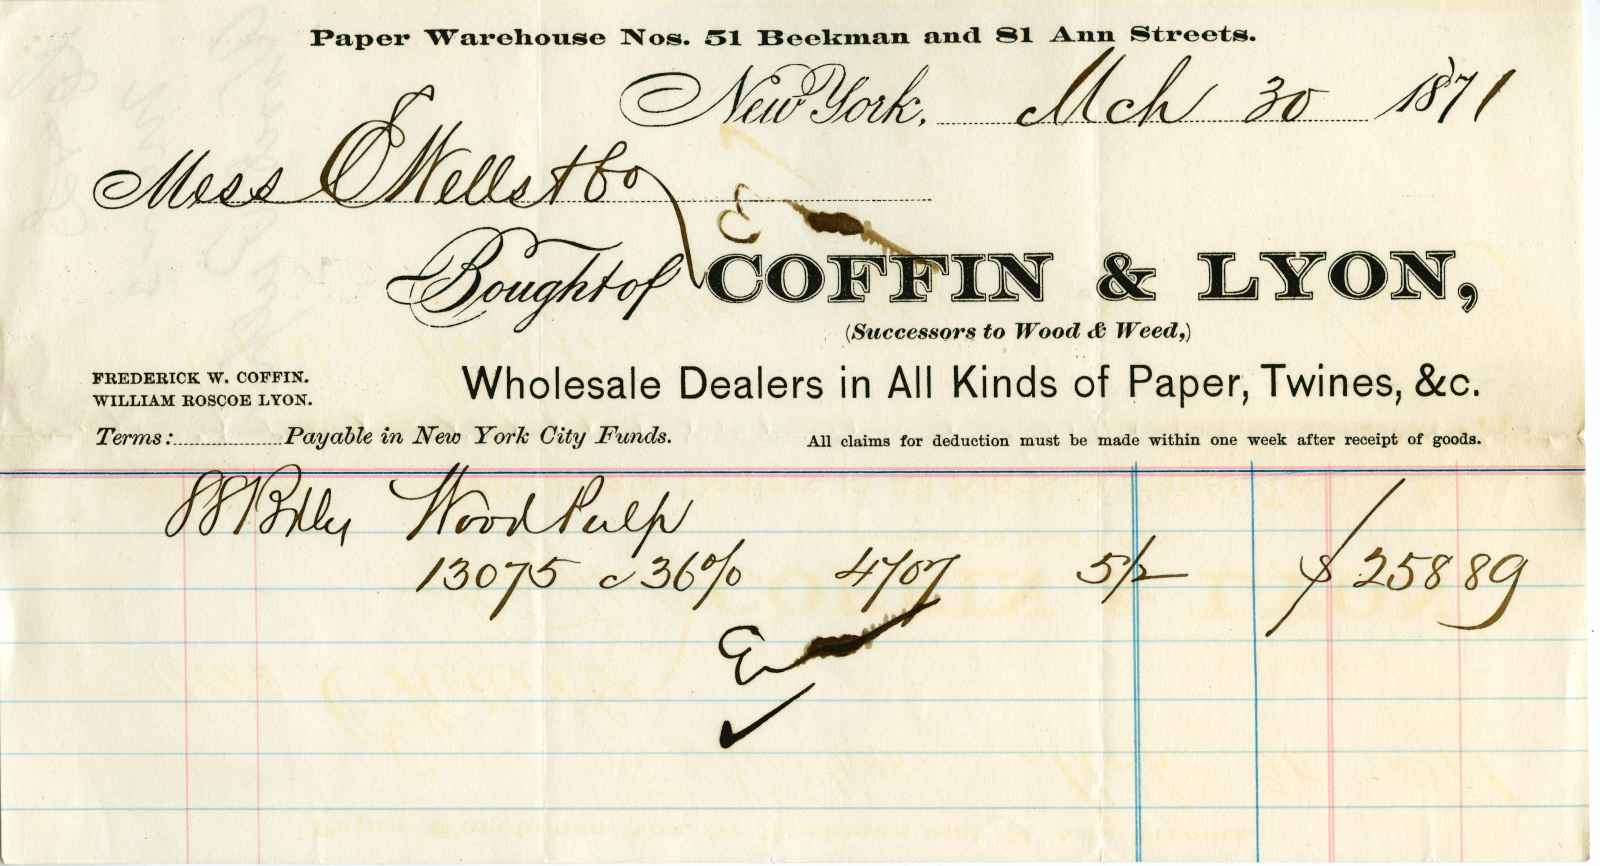 Paper Warehouse Nos. 51 Beekman and 81 Ann Streets.
New York, Mch 30 1871
Mess O Wells & Co
Bought of COFFIN & LYON,
(Successors to Wood & Weed,)
FREDERICK W. COFFIN.
WILLIAM ROSCOE LYON.
Wholesale Dealers in All Kinds of Paper, Twines, &c.
Terms: Payable in New York City Funds.
All claims for deduction must be made within one week after receipt of goods.
88 Bdls Wood Pulp
13075 c 36% 4707 5½ $258 89